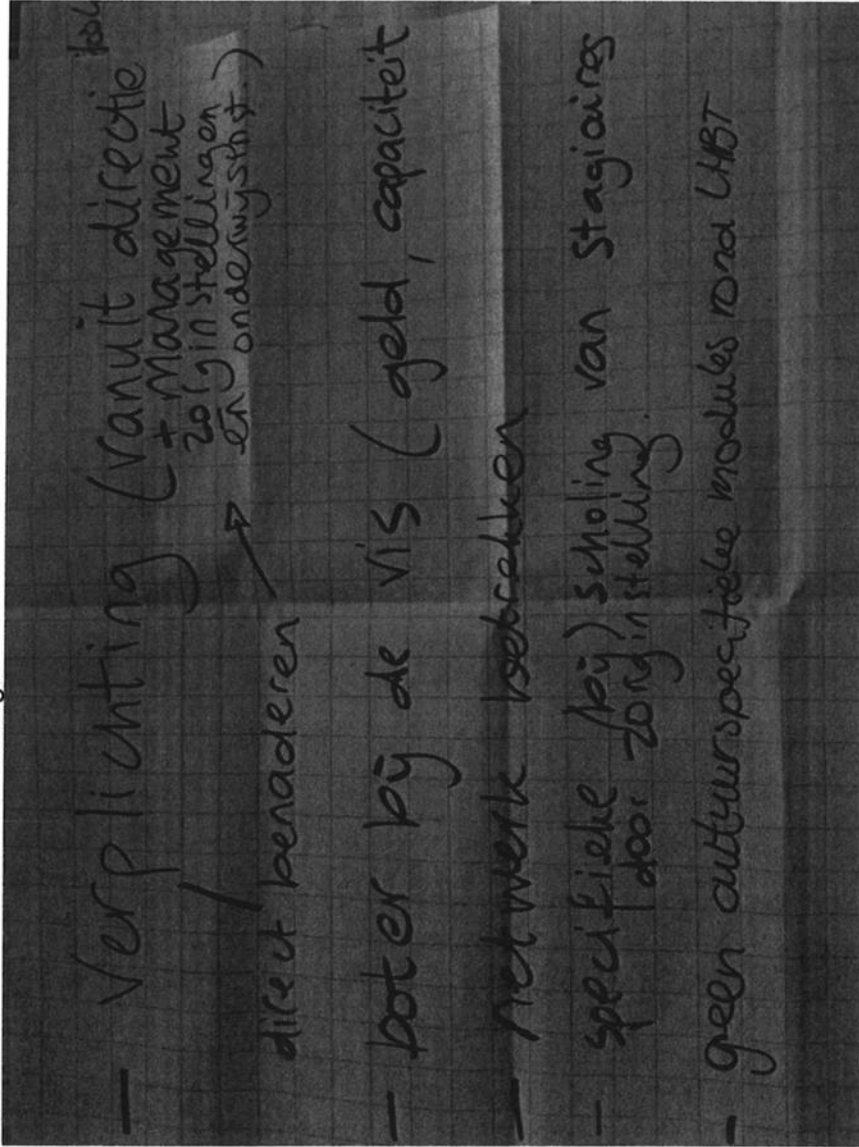 - Verplichting (vanuit directie
+ management
zorginstellingen
en onderwijsinst.)
direct benaderen
- boter bij de vis (geld, capaciteit
- netwerk betrekken
- specifieke (bij) scholing van stagiaires
door zorginstelling.
- geen cultuurspecifieke modules rond LHBT